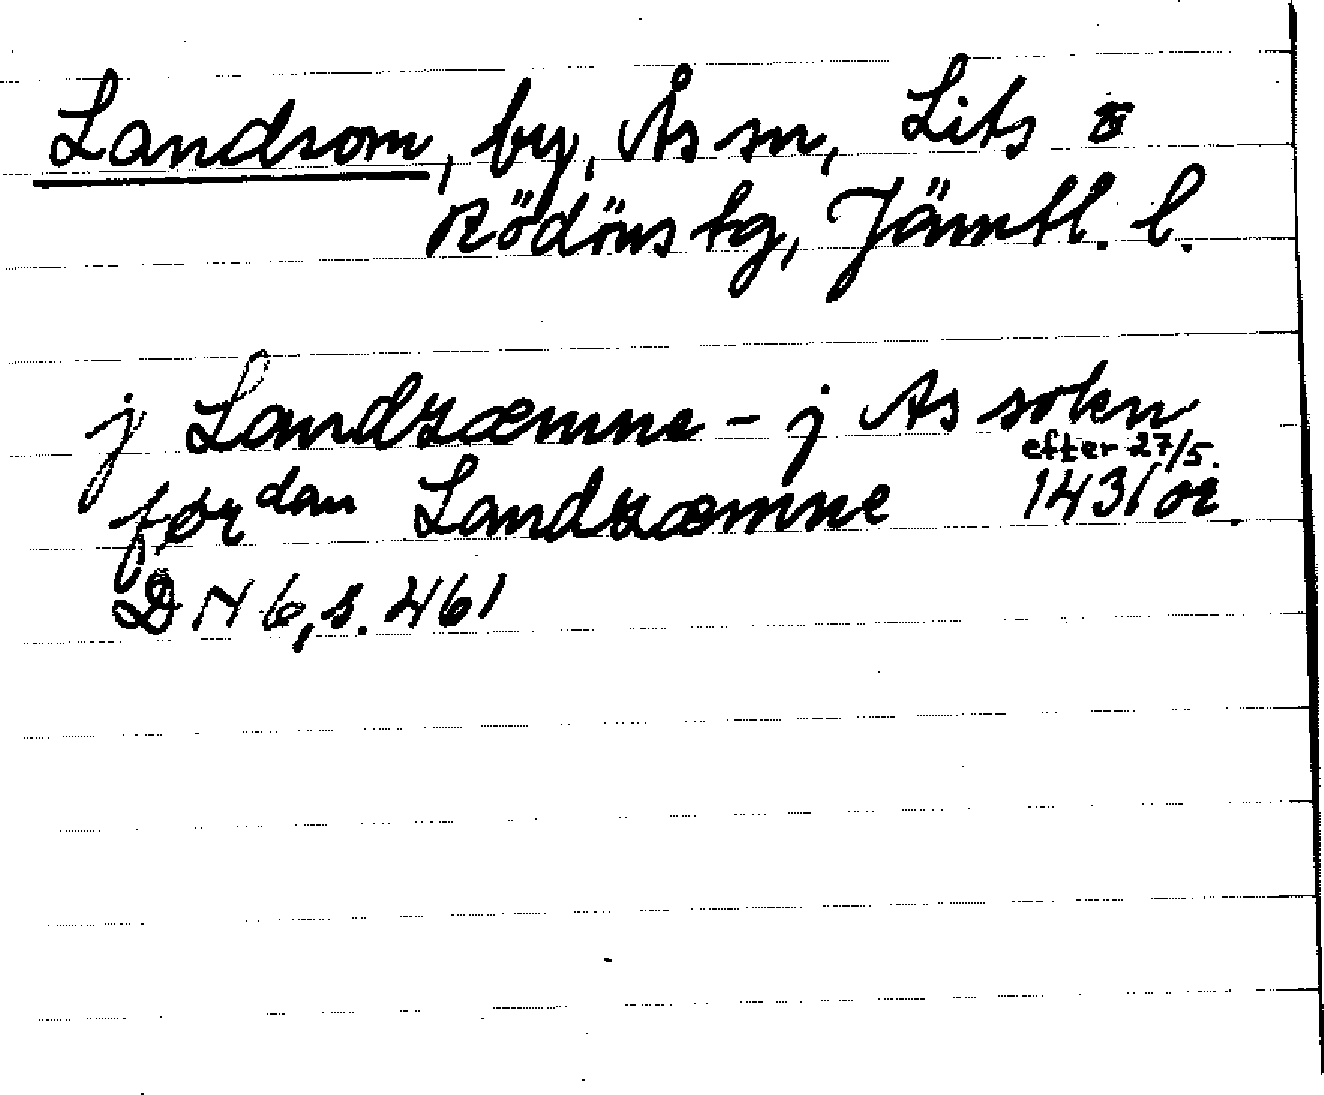 Landsom, by, Ås sn, Lits o
Rödöns tg, Jämtl. l.
j Landzæmne - j As sokn
efter 27/5.
før dan Landzæmne 1431 or.
DN 6, s. 461